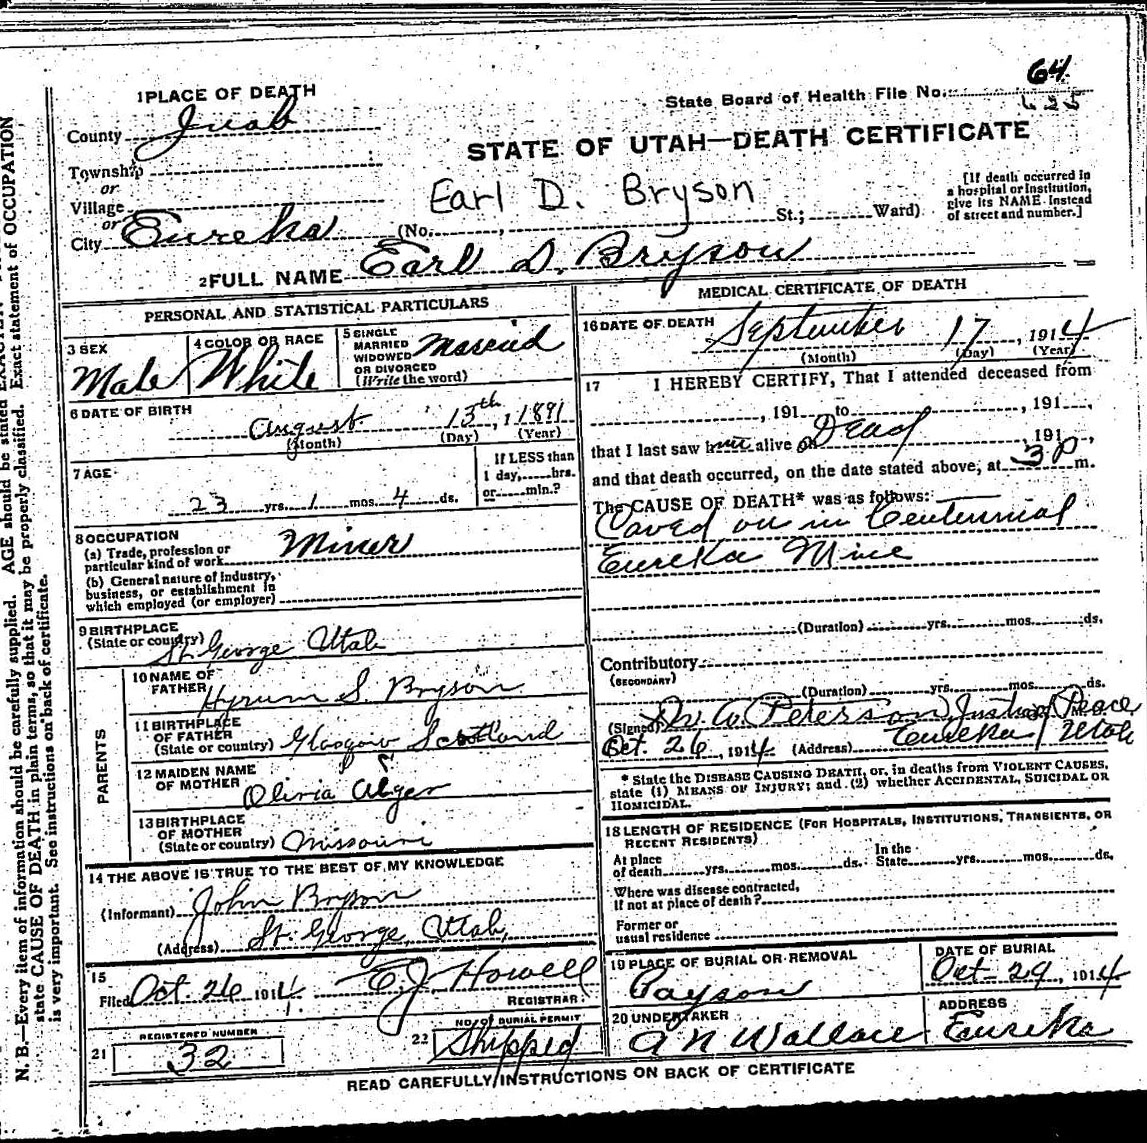 64
State Board of Health File No. 625
1 PLACE OF DEATH
County Juab
STATE OF UTAH—DEATH CERTIFICATE
Township
or
Village
or
City Eureka (No. , St.; Ward)
Earl D. Bryson
[If death occurred in
a hospital or institution,
give its NAME instead
of street and number.]
2 FULL NAME Earl D. Bryson
PERSONAL AND STATISTICAL PARTICULARS
3 SEX
Male
4 COLOR OR RACE
White
5 SINGLE
MARRIED
WIDOWED
OR DIVORCED
(Write the word)
Married
6 DATE OF BIRTH
August 13th, 1891
(Month) (Day) (Year)
7 AGE
23 yrs. 1 mos. 4 ds.
If LESS than
1 day, hrs.
or min.?
8 OCCUPATION
(a) Trade, profession or
particular kind of work Miner
(b) General nature of industry,
business, or establishment in
which employed (or employer)
9 BIRTHPLACE
(State or country) St. George Utah
PARENTS
10 NAME OF
FATHER Hyrum S. Bryson
11 BIRTHPLACE
OF FATHER
(State or country) Glasgow Scotland
12 MAIDEN NAME
OF MOTHER Olivia Alger
13 BIRTHPLACE
OF MOTHER
(State or country) Missouri
14 THE ABOVE IS TRUE TO THE BEST OF MY KNOWLEDGE
(Informant) John Bryson
(Address) St. George, Utah,
15
Filed Oct. 26 1914. E. J. Howell
REGISTRAR.
21 REGISTERED NUMBER
32
22 NO. OF BURIAL PERMIT
Shipped
MEDICAL CERTIFICATE OF DEATH
16 DATE OF DEATH September 17, 1914
(Month) (Day) (Year)
17 I HEREBY CERTIFY, That I attended deceased from
, 191 to , 191 ,
that I last saw him alive on Dead , 191 ,
and that death occurred, on the date stated above, at 3 P m.
The CAUSE OF DEATH* was as follows:
Caved on in Centennial
Eureka Mine
(Duration) yrs. mos. ds.
Contributory
(SECONDARY)
(Duration) yrs. mos. ds.
(Signed) Peterson, Justice Peace
Oct. 26, 1914. (Address) Eureka Utah
* State the DISEASE CAUSING DEATH, or, in deaths from VIOLENT CAUSES,
state (1) MEANS OF INJURY; and (2) whether ACCIDENTAL, SUICIDAL OR
HOMICIDAL.
18 LENGTH OF RESIDENCE (FOR HOSPITALS, INSTITUTIONS, TRANSIENTS, OR
RECENT RESIDENTS)
At place
of death yrs. mos. ds. In the
State yrs. mos. ds.
Where was disease contracted,
if not at place of death?
Former or
usual residence
19 PLACE OF BURIAL OR REMOVAL
Payson
DATE OF BURIAL
Oct-29, 1914
20 UNDERTAKER
A N Wallace
ADDRESS
Eureka
READ CAREFULLY INSTRUCTIONS ON BACK OF CERTIFICATE
N. B.—Every item of information should be carefully supplied. AGE should be stated
state CAUSE OF DEATH in plain terms, so that it may be properly classified. Exact statement of OCCUPATION
is very important. See instructions on back of certificate.